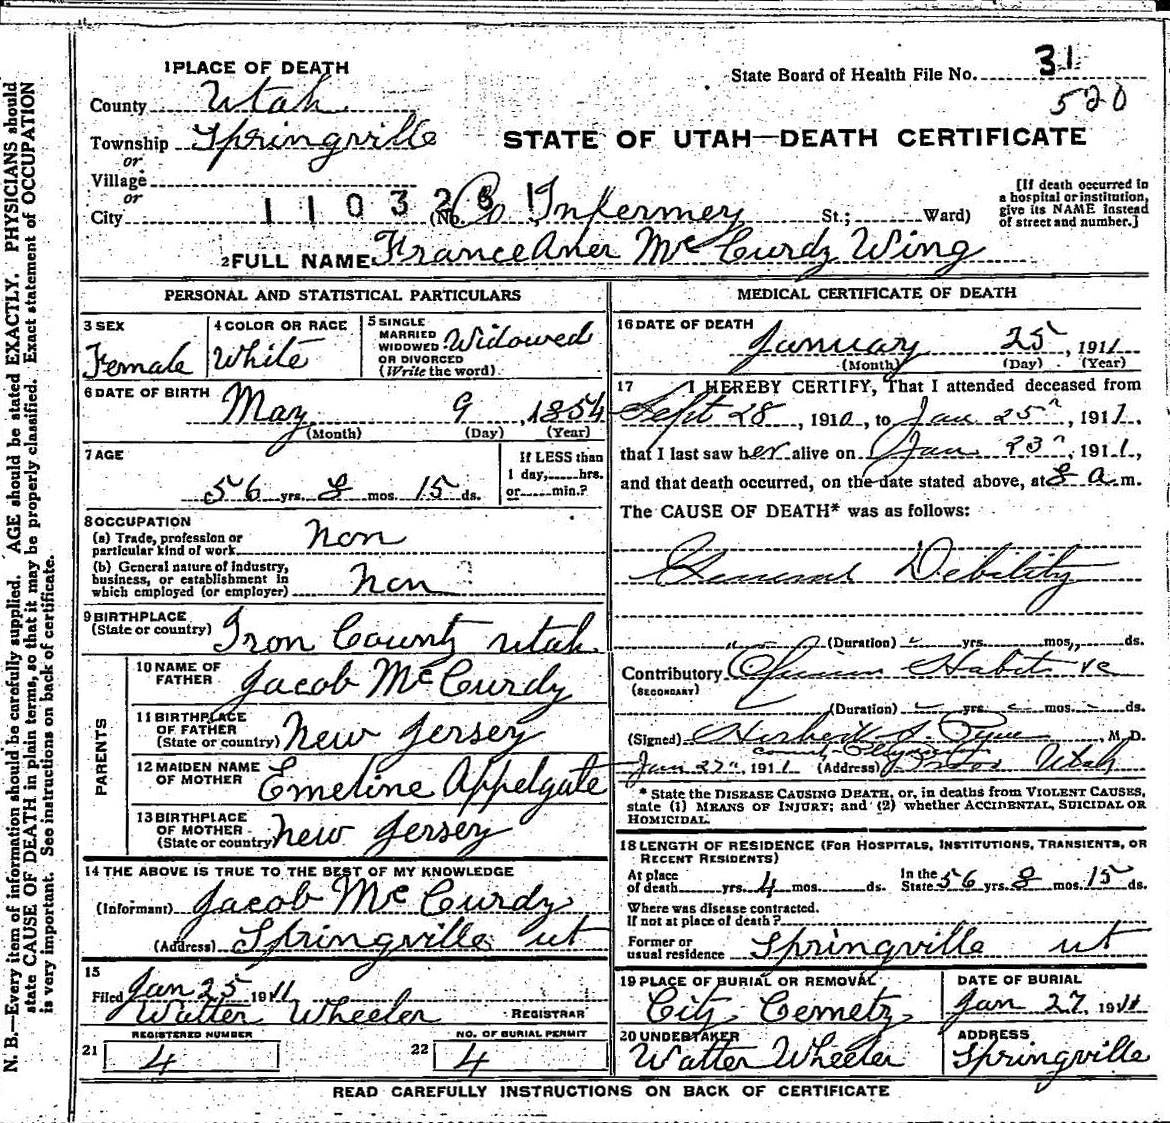 1 PLACE OF DEATH
State Board of Health File No. 31
520
County Utah
Township Springville
STATE OF UTAH—DEATH CERTIFICATE
or
Village
or
City
1 1 0 3 2 8 1
(No. Co Infermey St.; Ward)
[If death occurred in
a hospital or institution,
give its NAME instead
of street and number.]
2 FULL NAME Franceaner McCurdy Wing
PERSONAL AND STATISTICAL PARTICULARS
3 SEX
Female
4 COLOR OR RACE
White
5 SINGLE
MARRIED
WIDOWED
OR DIVORCED
(Write the word).
Widowed
6 DATE OF BIRTH
May 9, 1854
(Month) (Day) (Year)
7 AGE
56 yrs. 8 mos. 15 ds.
If LESS than
1 day, hrs.
or min.?
8 OCCUPATION
(a) Trade, profession or
particular kind of work
Non
(b) General nature of industry,
business, or establishment in
which employed (or employer)
Non
9 BIRTHPLACE
(State or country)
Iron County Utah.
PARENTS
10 NAME OF
FATHER
Jacob McCurdy
11 BIRTHPLACE
OF FATHER
(State or country)
New Jersey
12 MAIDEN NAME
OF MOTHER
Emeline Appelgate
13 BIRTHPLACE
OF MOTHER
(State or country)
New Jersey
14 THE ABOVE IS TRUE TO THE BEST OF MY KNOWLEDGE
(Informant) Jacob McCurdy
(Address) Springville ut
15
Filed Jan 25 1911
Walter Wheeler REGISTRAR
REGISTERED NUMBER
21 4
NO. OF BURIAL PERMIT
22 4
MEDICAL CERTIFICATE OF DEATH
16 DATE OF DEATH
January 25, 1911
(Month) (Day) (Year)
17 I HEREBY CERTIFY, That I attended deceased from
Sept 28, 1910, to Jan 25", 1911,
that I last saw her alive on Jan 23", 1911,
and that death occurred, on the date stated above, at 8 a.m.
The CAUSE OF DEATH* was as follows:
General Debility
(Duration) yrs. mos. ds.
Contributory Opium Habit
(SECONDARY)
(Duration) yrs. mos. ds.
(Signed) Herbert S. Pyne, M.D.
County Physician
Jan 27", 1911 (Address) Provo Utah
* State the DISEASE CAUSING DEATH, or, in deaths from VIOLENT CAUSES,
state (1) MEANS OF INJURY; and (2) whether ACCIDENTAL, SUICIDAL OR
HOMICIDAL.
18 LENGTH OF RESIDENCE (FOR HOSPITALS, INSTITUTIONS, TRANSIENTS, OR
RECENT RESIDENTS)
At place
of death yrs. 4 mos. ds.
In the
State 56 yrs. 8 mos. 15 ds.
Where was disease contracted.
If not at place of death?
Former or
usual residence Springville ut
19 PLACE OF BURIAL OR REMOVAL
City Cemety
DATE OF BURIAL
Jan 27, 1911
20 UNDERTAKER
Walter Wheeler
ADDRESS
Springville
READ CAREFULLY INSTRUCTIONS ON BACK OF CERTIFICATE
N. B.—Every item of information should be carefully supplied. AGE should be stated EXACTLY. PHYSICIANS should
state CAUSE OF DEATH in plain terms, so that it may be properly classified. Exact statement of OCCUPATION
is very important. See instructions on back of certificate.